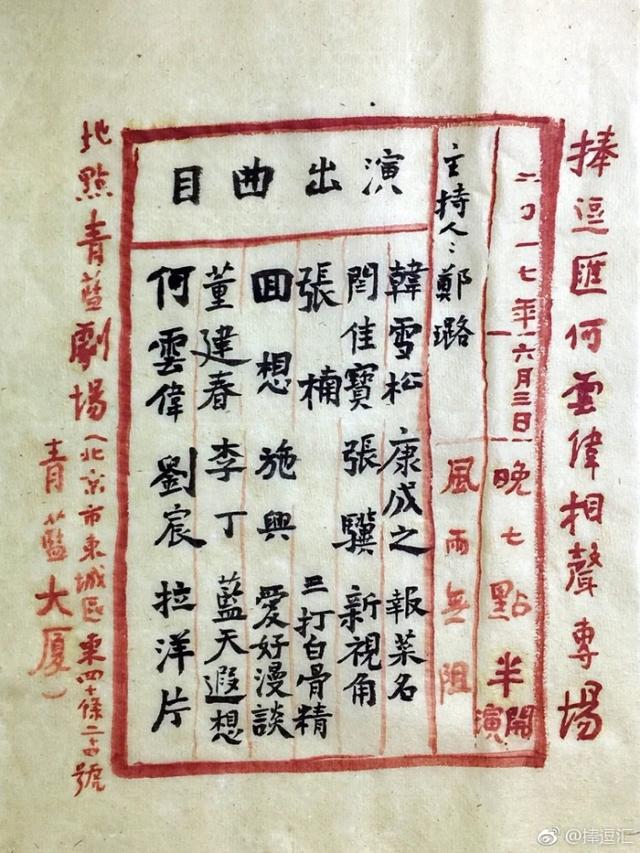 捧逗匯何雲偉相聲專場
二〇一七年(六月三日)晚七點半開演
主持人:鄭璐
風雨無阻
演出曲目
韓雪松 康成之 報菜名
閆佳寶 張驥 新視角
張楠 三打白骨精
回想 施興 愛好漫談
董建春 李丁 藍天遐想
何雲偉 劉宸 拉洋片
地點青藍劇場(北京市東城區東四十條二十四號
青藍大厦)
@捧逗汇